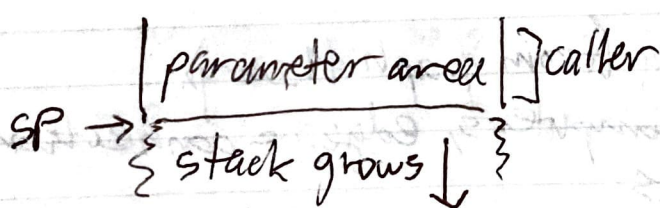 parameter area ] caller
SP →
stack grows ↓